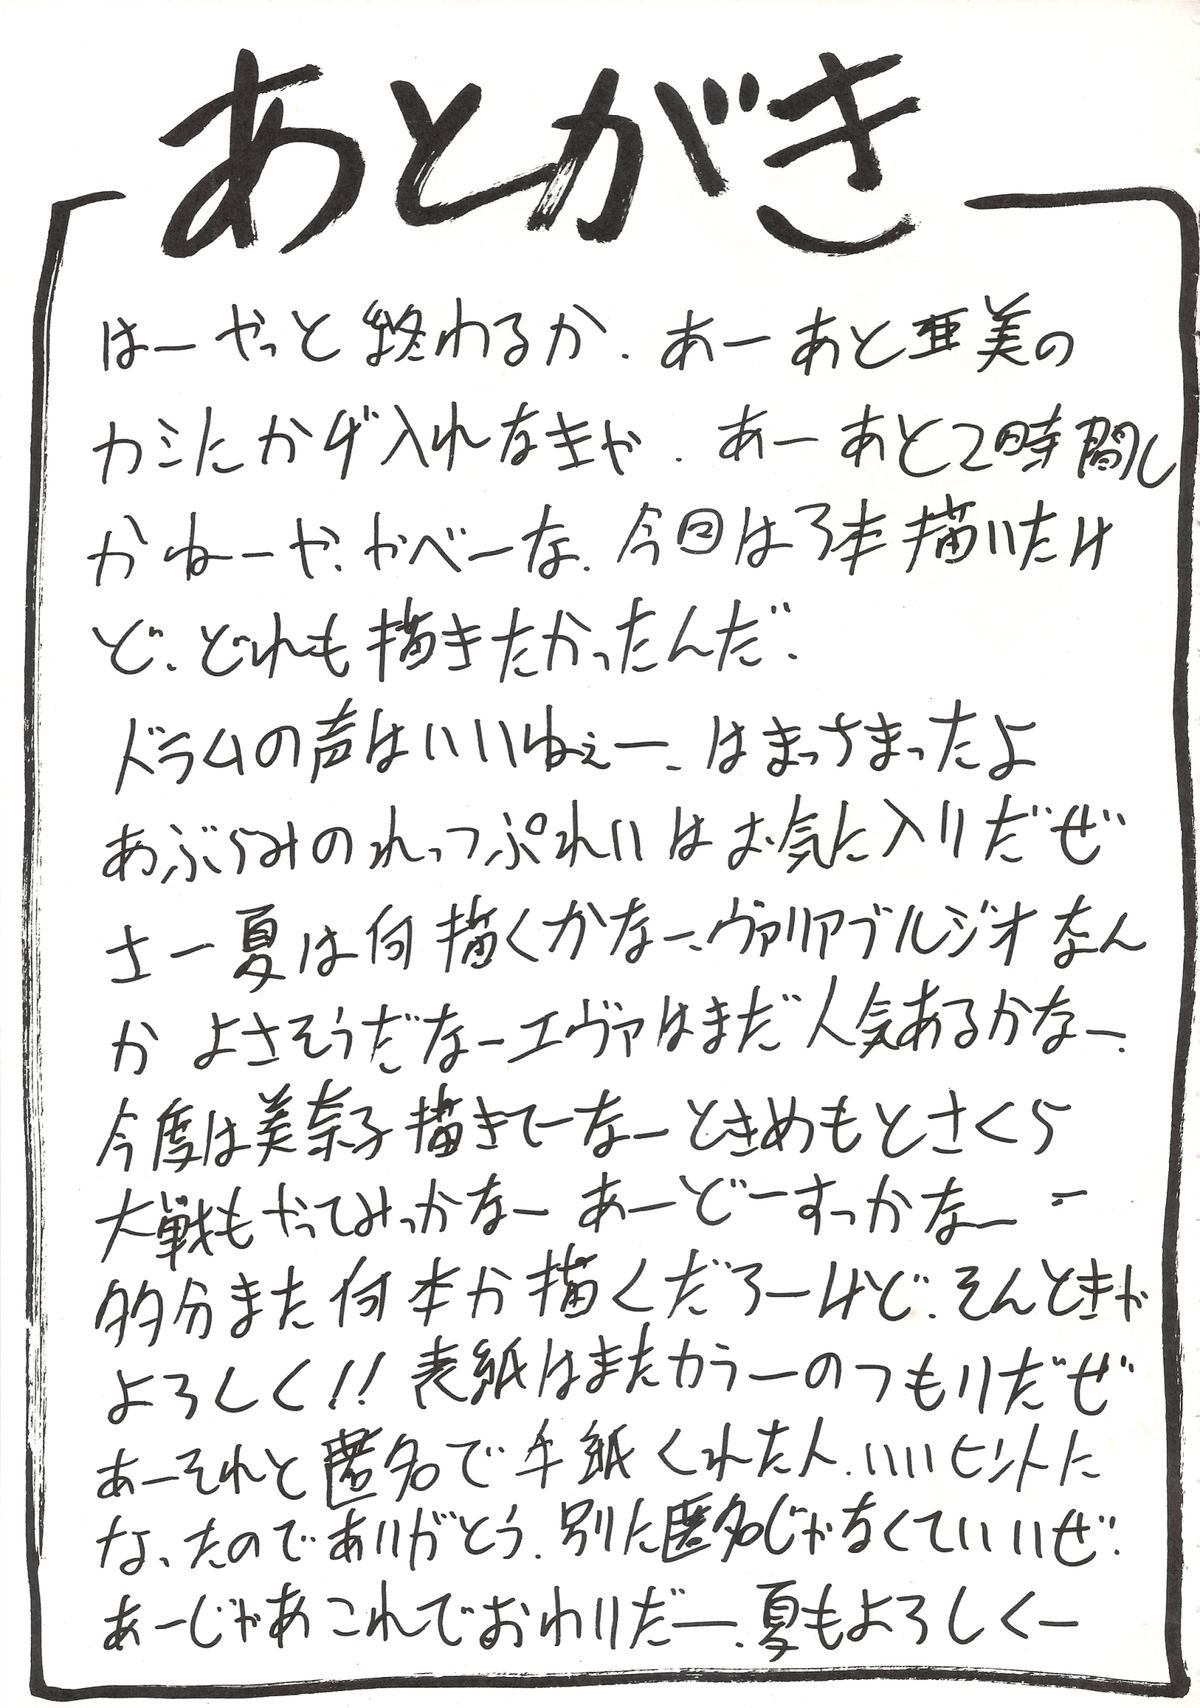 あとがき
はーやっと終わるか、あーあと亜美の
カミにかげ入れなきゃ、あーあと2時間し
かねーや、やべーな、今回は3本描いたけ
ど、どれも描きたかったんだ、
ドラムの声はいいねぇー、はまっさまったよ
あぶらみのれっつぷれいはお気に入りだぜ
さー夏は何描くかなー、ヴァリアブルジオなん
か よさそうだなーエヴァはまだ人気あるかなー、
今度は美奈子描きてーなーときめもとさくら
大戦もやってみっかなー あーどーすっかなー
多分また何本か描くだろーけど、そんときゃ
よろしく!! 表紙はまたカラーのつもりだぜ
あーそれと匿名で手紙くれた人、いいヒントに
なったのでありがとう、別に匿名じゃなくていいぜ!
あーじゃあこれでおわりだー、夏もよろしくー